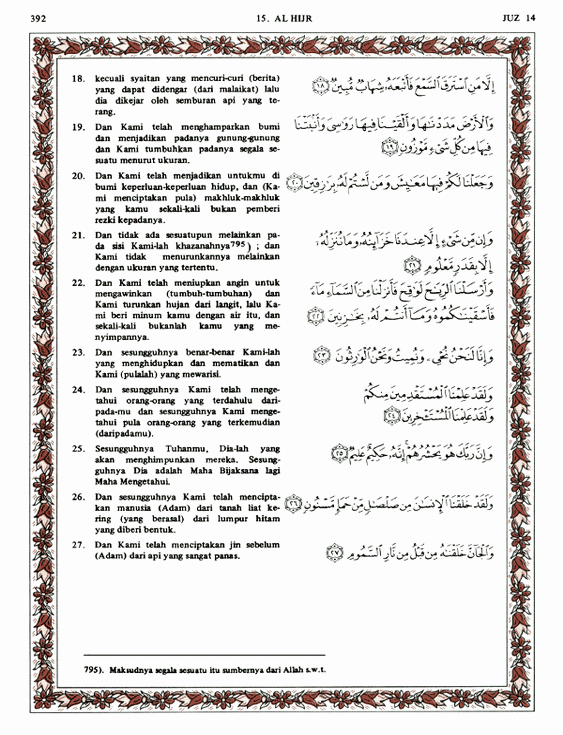 392 15. AL HIJR JUZ 14
18. kecuali syaitan yang mencuri-curi (berita)
yang dapat didengar (dari malaikat) lalu
dia dikejar oleh semburan api yang te-
rang.
إِلَّا مَنِ اسْتَرَقَ السَّمْعَ فَأَتْبَعَهُ شِهَابٌ مُبِينٌ ﴿١٨﴾
19. Dan Kami telah menghamparkan bumi
dan menjadikan padanya gunung-gunung
dan Kami tumbuhkan padanya segala se-
suatu menurut ukuran.
وَالْأَرْضَ مَدَدْنَاهَا وَأَلْقَيْنَا فِيهَا رَوَاسِيَ وَأَنْبَتْنَا
فِيهَا مِنْ كُلِّ شَيْءٍ مَوْزُونٍ ﴿١٩﴾
20. Dan Kami telah menjadikan untukmu di
bumi keperluan-keperluan hidup, dan (Ka-
mi menciptakan pula) makhluk-makhluk
yang kamu sekali-kali bukan pemberi
rezki kepadanya.
وَجَعَلْنَا لَكُمْ فِيهَا مَعَايِشَ وَمَنْ لَسْتُمْ لَهُ بِرَازِقِينَ ﴿٢٠﴾
21. Dan tidak ada sesuatupun melainkan pa-
da sisi Kami-lah khazanahnya795) ; dan
Kami tidak menurunkannya melainkan
dengan ukuran yang tertentu.
وَإِنْ مِنْ شَيْءٍ إِلَّا عِنْدَنَا خَزَائِنُهُ وَمَا نُنَزِّلُهُ
إِلَّا بِقَدَرٍ مَعْلُومٍ ﴿٢١﴾
22. Dan Kami telah meniupkan angin untuk
mengawinkan (tumbuh-tumbuhan) dan
Kami turunkan hujan dari langit, lalu Ka-
mi beri minum kamu dengan air itu, dan
sekali-kali bukanlah kamu yang me-
nyimpannya.
وَأَرْسَلْنَا الرِّيَاحَ لَوَاقِحَ فَأَنْزَلْنَا مِنَ السَّمَاءِ مَاءً
فَأَسْقَيْنَاكُمُوهُ وَمَا أَنْتُمْ لَهُ بِخَازِنِينَ ﴿٢٢﴾
23. Dan sesungguhnya benar-benar Kami-lah
yang menghidupkan dan mematikan dan
Kami (pulalah) yang mewarisi.
وَإِنَّا لَنَحْنُ نُحْيِي وَنُمِيتُ وَنَحْنُ الْوَارِثُونَ ﴿٢٣﴾
24. Dan sesungguhnya Kami telah menge-
tahui orang-orang yang terdahulu dari-
pada-mu dan sesungguhnya Kami menge-
tahui pula orang-orang yang terkemudian
(daripadamu).
وَلَقَدْ عَلِمْنَا الْمُسْتَقْدِمِينَ مِنْكُمْ
وَلَقَدْ عَلِمْنَا الْمُسْتَأْخِرِينَ ﴿٢٤﴾
25. Sesungguhnya Tuhanmu, Dia-lah yang
akan menghimpunkan mereka. Sesung-
guhnya Dia adalah Maha Bijaksana lagi
Maha Mengetahui.
وَإِنَّ رَبَّكَ هُوَ يَحْشُرُهُمْ إِنَّهُ حَكِيمٌ عَلِيمٌ ﴿٢٥﴾
26. Dan sesungguhnya Kami telah mencipta-
kan manusia (Adam) dari tanah liat ke-
ring (yang berasal) dari lumpur hitam
yang diberi bentuk.
وَلَقَدْ خَلَقْنَا الْإِنْسَانَ مِنْ صَلْصَالٍ مِنْ حَمَإٍ مَسْنُونٍ ﴿٢٦﴾
27. Dan Kami telah menciptakan jin sebelum
(Adam) dari api yang sangat panas.
وَالْجَانَّ خَلَقْنَاهُ مِنْ قَبْلُ مِنْ نَارِ السَّمُومِ ﴿٢٧﴾
795). Maksudnya segala sesuatu itu sumbernya dari Allah s.w.t.